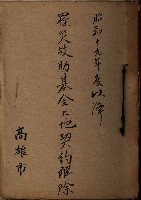 昭和十九年度以降
罹災救助基金土地契約解除
高雄市